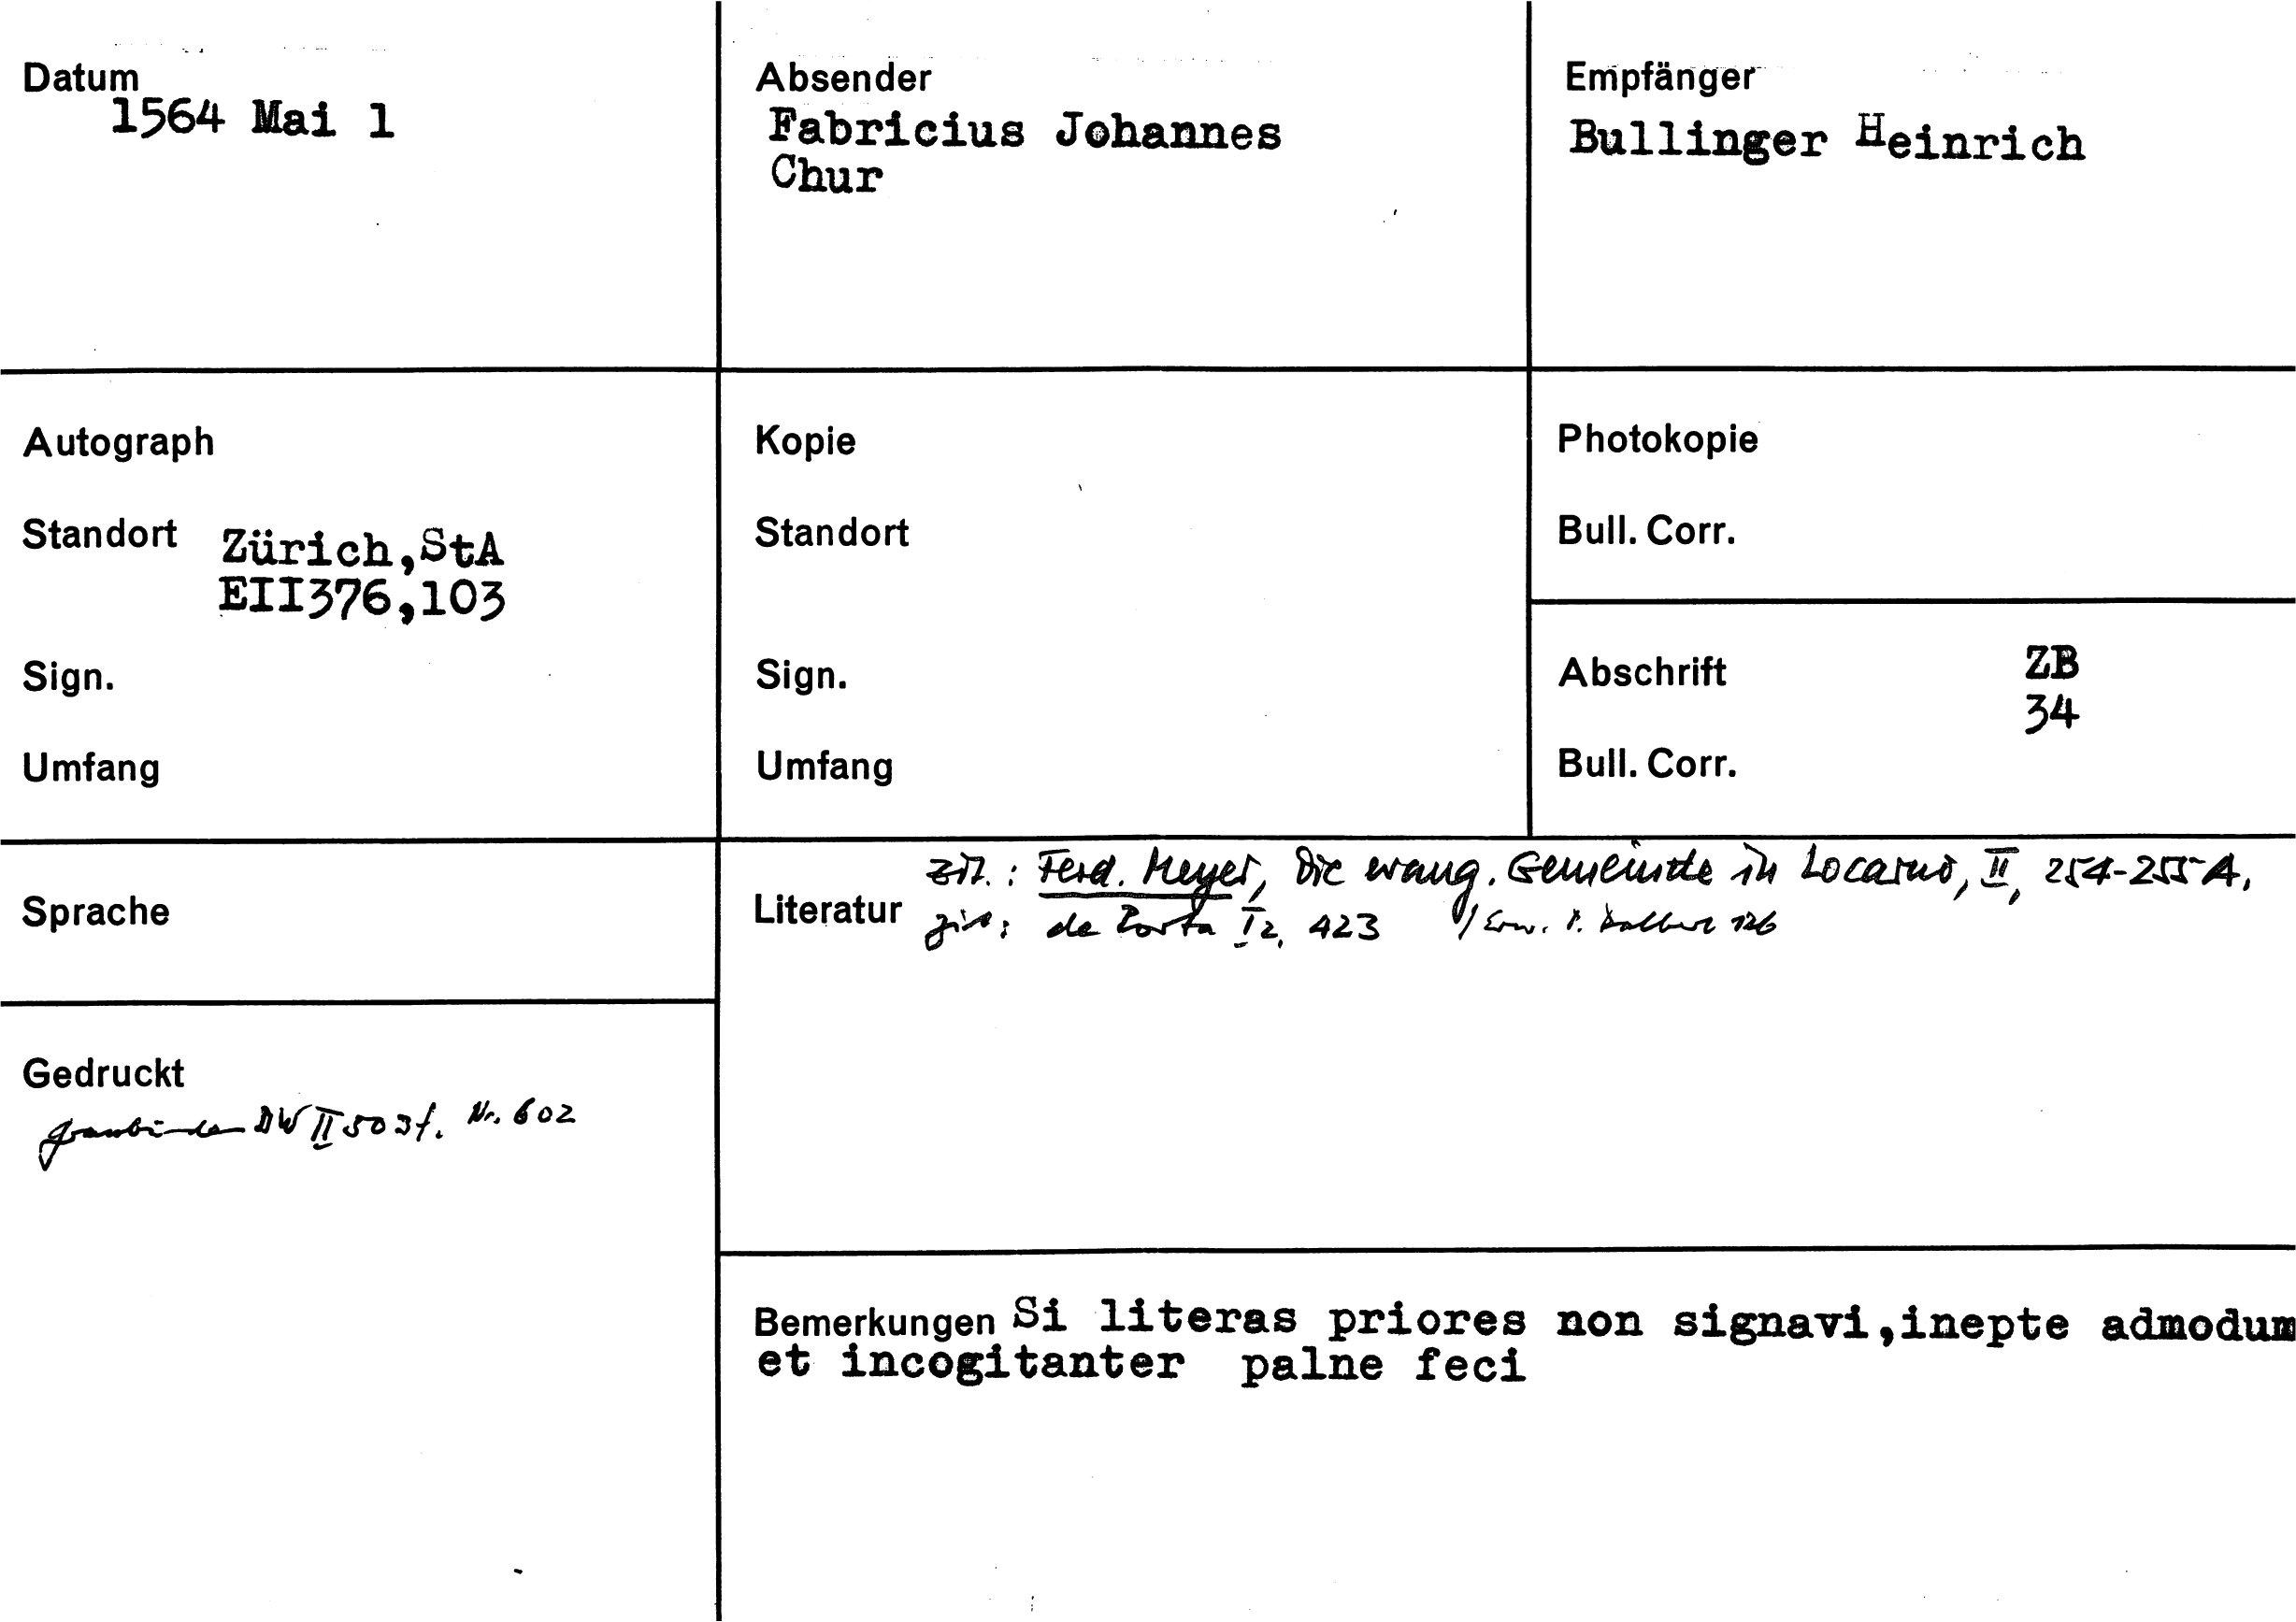 Datum
1564 Mai 1
Absender
Fabricius Johannes
Chur
Empfänger
Bullinger Heinrich
Autograph
Standort Zürich,StA
EII376,103
Sign.
Umfang
Kopie
Standort
Sign.
Umfang
Photokopie
Bull. Corr.
Abschrift ZB
34
Bull. Corr.
Sprache
Gedruckt
Graubünden BW II 503f. Nr. 602
Literatur
zit.: Ferd. Meyer, Die evang. Gemeinde in Locarno, II, 254-255 A.
zit: de Porta I 2, 423 / Erw. 126
Bemerkungen Si literas priores non signavi,inepte admodum
et incogitanter palne feci